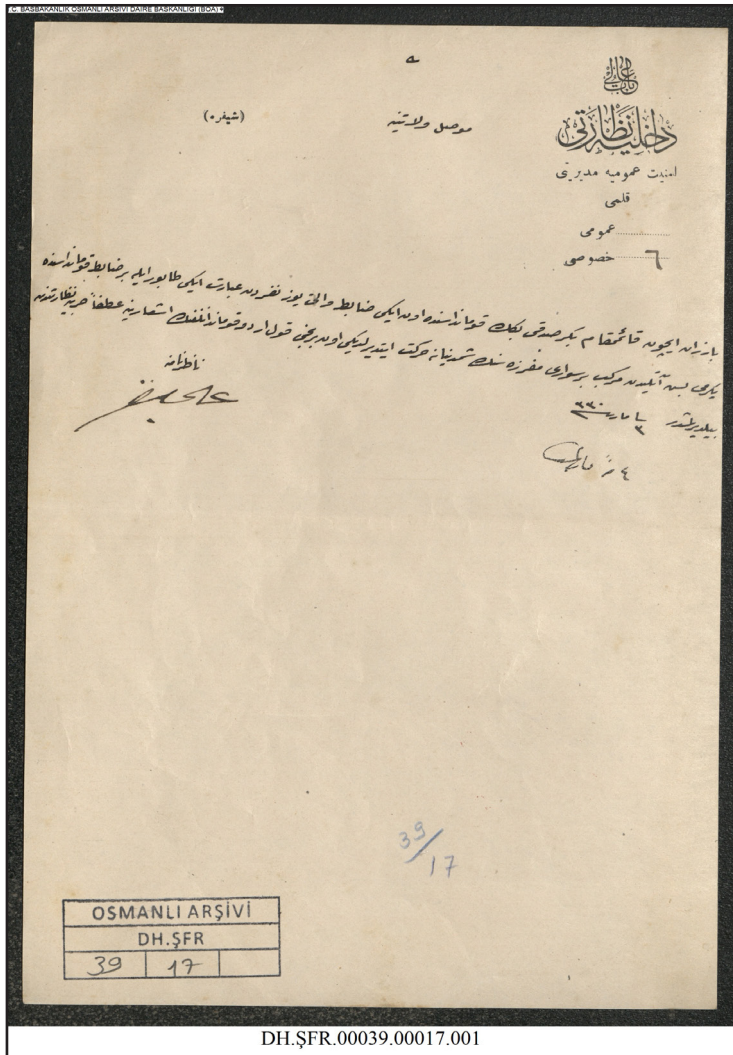 T.C. BAŞBAKANLIK OSMANLI ARŞİVİ DAİRE BAŞKANLIĞI (BOA)
باب عالی
داخلیه نظارتی
امنیت عمومیه مدیریتی
قلمی
عمومی
خصوصی ٦
موصل ولایتنه
(شیفره)
بارزان ایچون قائمقام بکر صدقی بكك قومانداسنده اون ایکی ضابط والتی یوز نفردن عبارت ایکی طابور ایله بر ضابط قومانداسنده
یکرمی بش آتلیدن مرکب بر سواری مفرزه سنك حرکت ایتدیرلدیکی اون برنجی قول اردو قوماندانلغنك اشعارینه عطفاً حربیه نظارتندن
بیلدیرلمشدر ٣ مارت ٣٣٠
ناظر نامنه
٤ مارت
39/17
OSMANLI ARŞİVİ
DH.ŞFR
39 17
DH.ŞFR.00039.00017.001